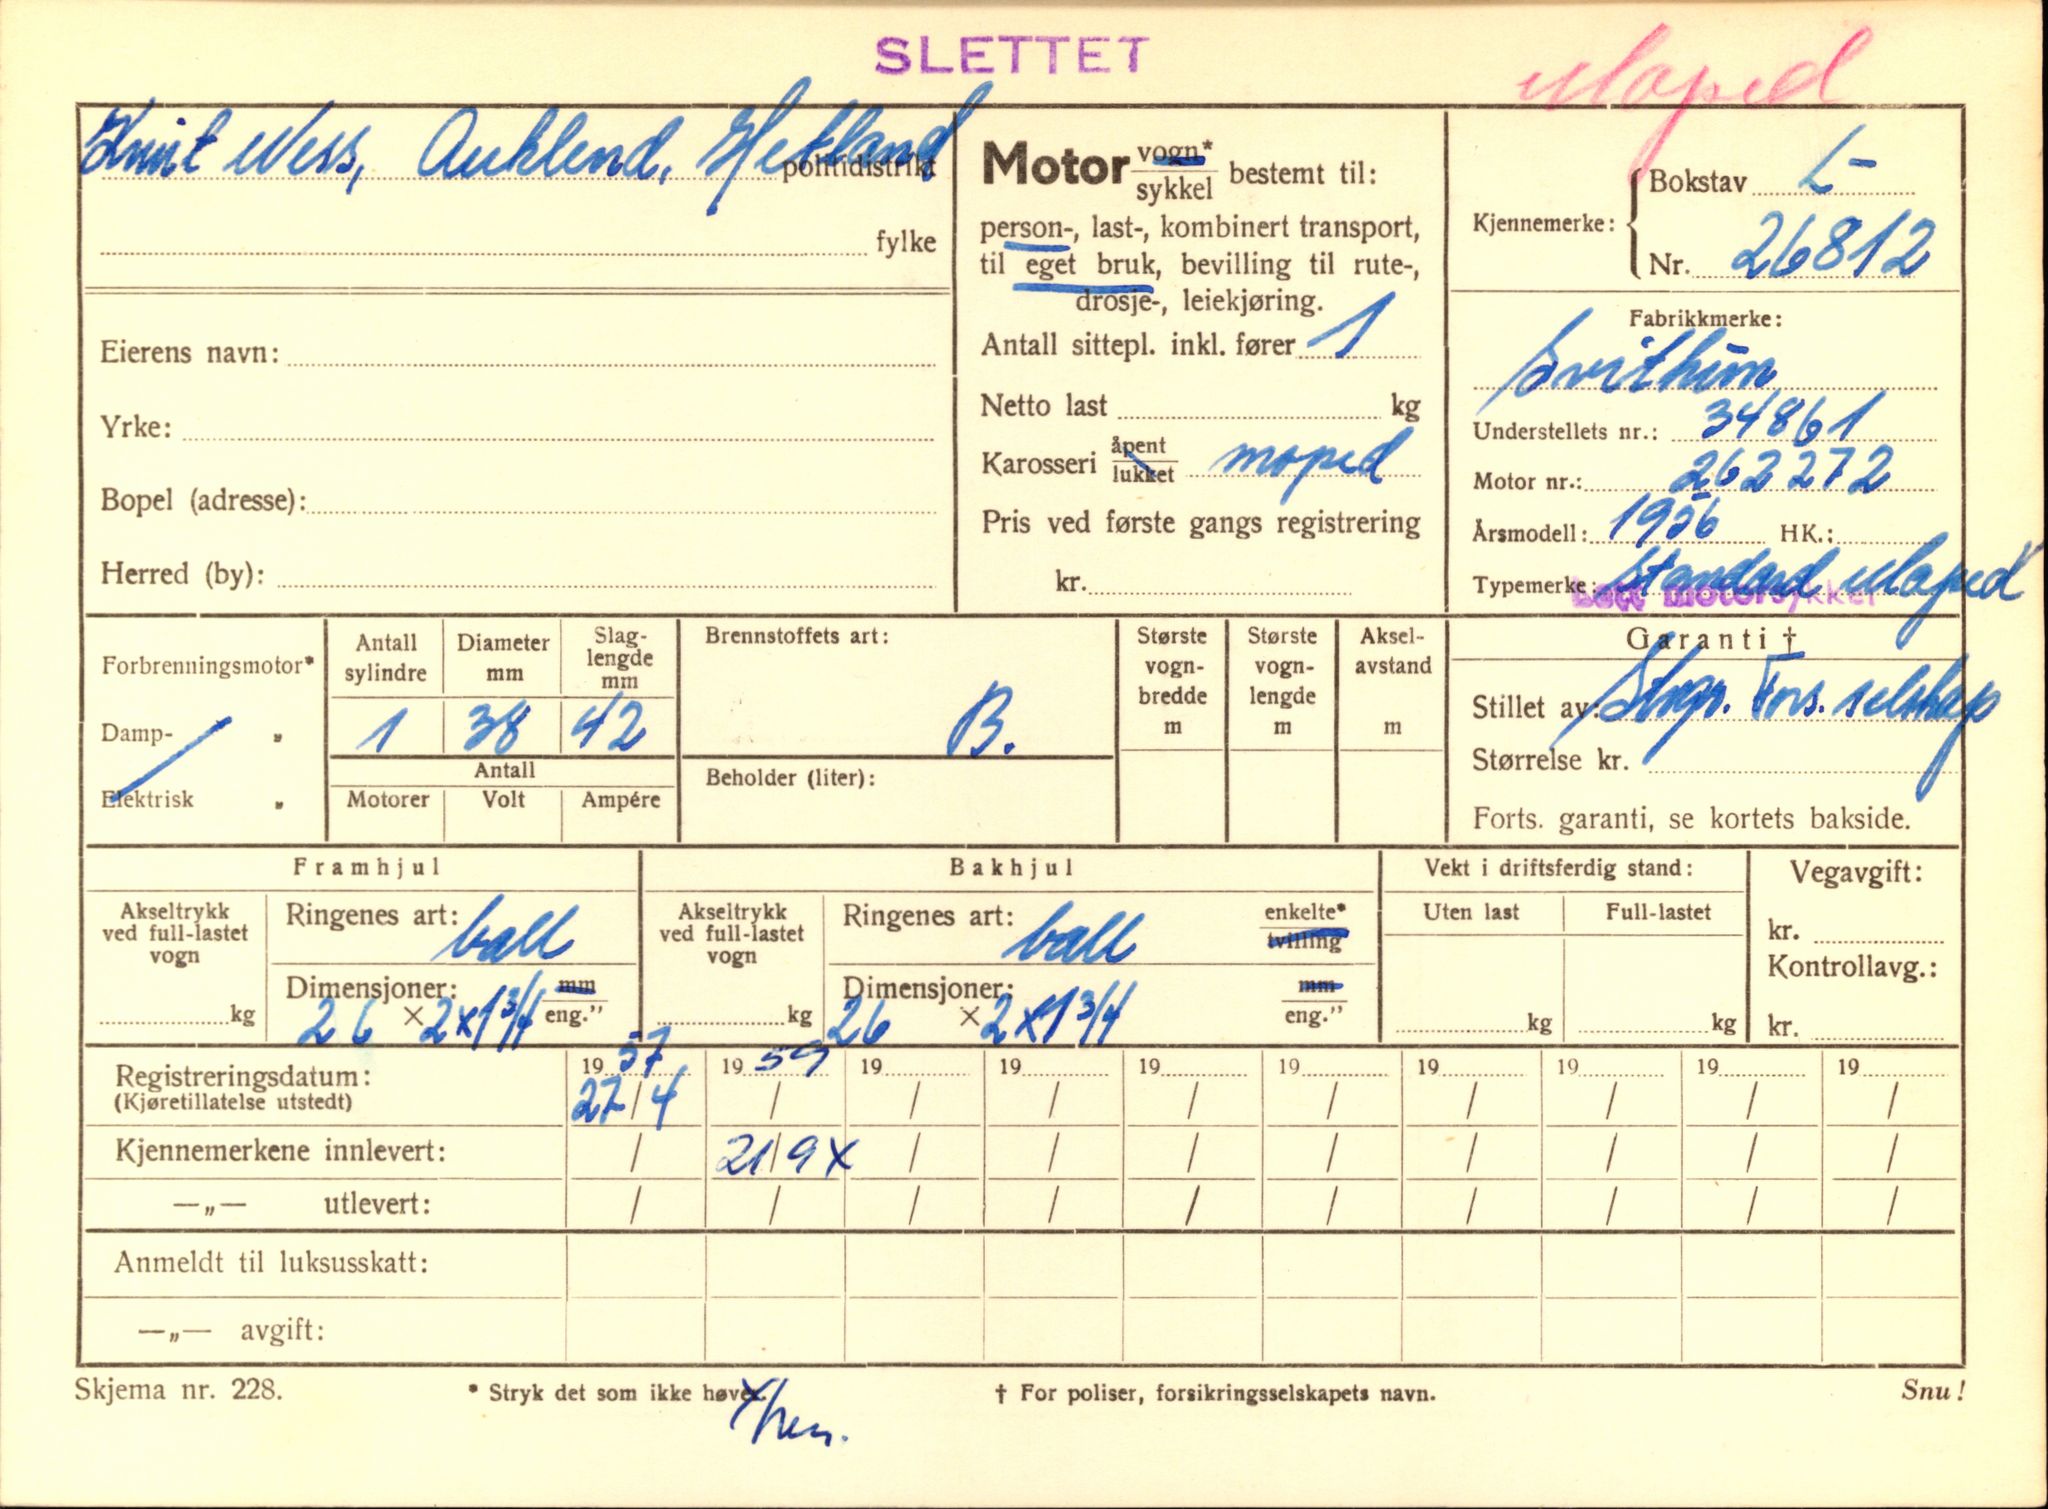 SLETTET
Moped
Knut Ness, Auklend, Hetland politidistrikt
fylke
Eierens navn:
Yrke:
Bopel (adresse):
Herred (by):
Motor vogn* / sykkel bestemt til:
person-, last-, kombinert transport,
til eget bruk, bevilling til rute-,
drosje-, leiekjøring.
Antall sittepl. inkl. fører 1
Netto last kg
Karosseri åpent / lukket moped
Pris ved første gangs registrering
kr.
Kjennemerke: Bokstav L-
Nr. 26812
Fabrikkmerke:
Svithun
Understellets nr.: 34861
Motor nr.: 262272
Årsmodell: 1956 HK.:
Typemerke: Standard Moped
Lett motorsykkel
Forbrenningsmotor*
Damp- „
Elektrisk „
Antall sylindre
Diameter mm
Slag-lengde mm
1 38 42
Antall
Motorer Volt Ampére
Brennstoffets art:
B.
Beholder (liter):
Største vogn-bredde m
Største vogn-lengde m
Aksel-avstand m
Garanti †
Stillet av: Fors. selskap
Størrelse kr.
Forts. garanti, se kortets bakside.
Framhjul
Akseltrykk ved full-lastet vogn
kg
Ringenes art: ball
Dimensjoner: mm
26 × 2x1 3/4 eng."
Bakhjul
Akseltrykk ved full-lastet vogn
kg
Ringenes art: ball enkelte* / tvilling
Dimensjoner: mm
26 × 2x1 3/4 eng."
Vekt i driftsferdig stand:
Uten last Full-lastet
kg kg
Vegavgift:
kr.
Kontrollavg.:
kr.
Registreringsdatum: 1957 1959 19 19 19 19 19 19 19 19
(Kjøretillatelse utstedt) 27/4 / / / / / / / / /
Kjennemerkene innlevert: / 21/9 x / / / / / / / /
—„— utlevert: / / / / / / / / / /
Anmeldt til luksusskatt:
—„— avgift:
Skjema nr. 228. * Stryk det som ikke høver. † For poliser, forsikringsselskapets navn. Snu!